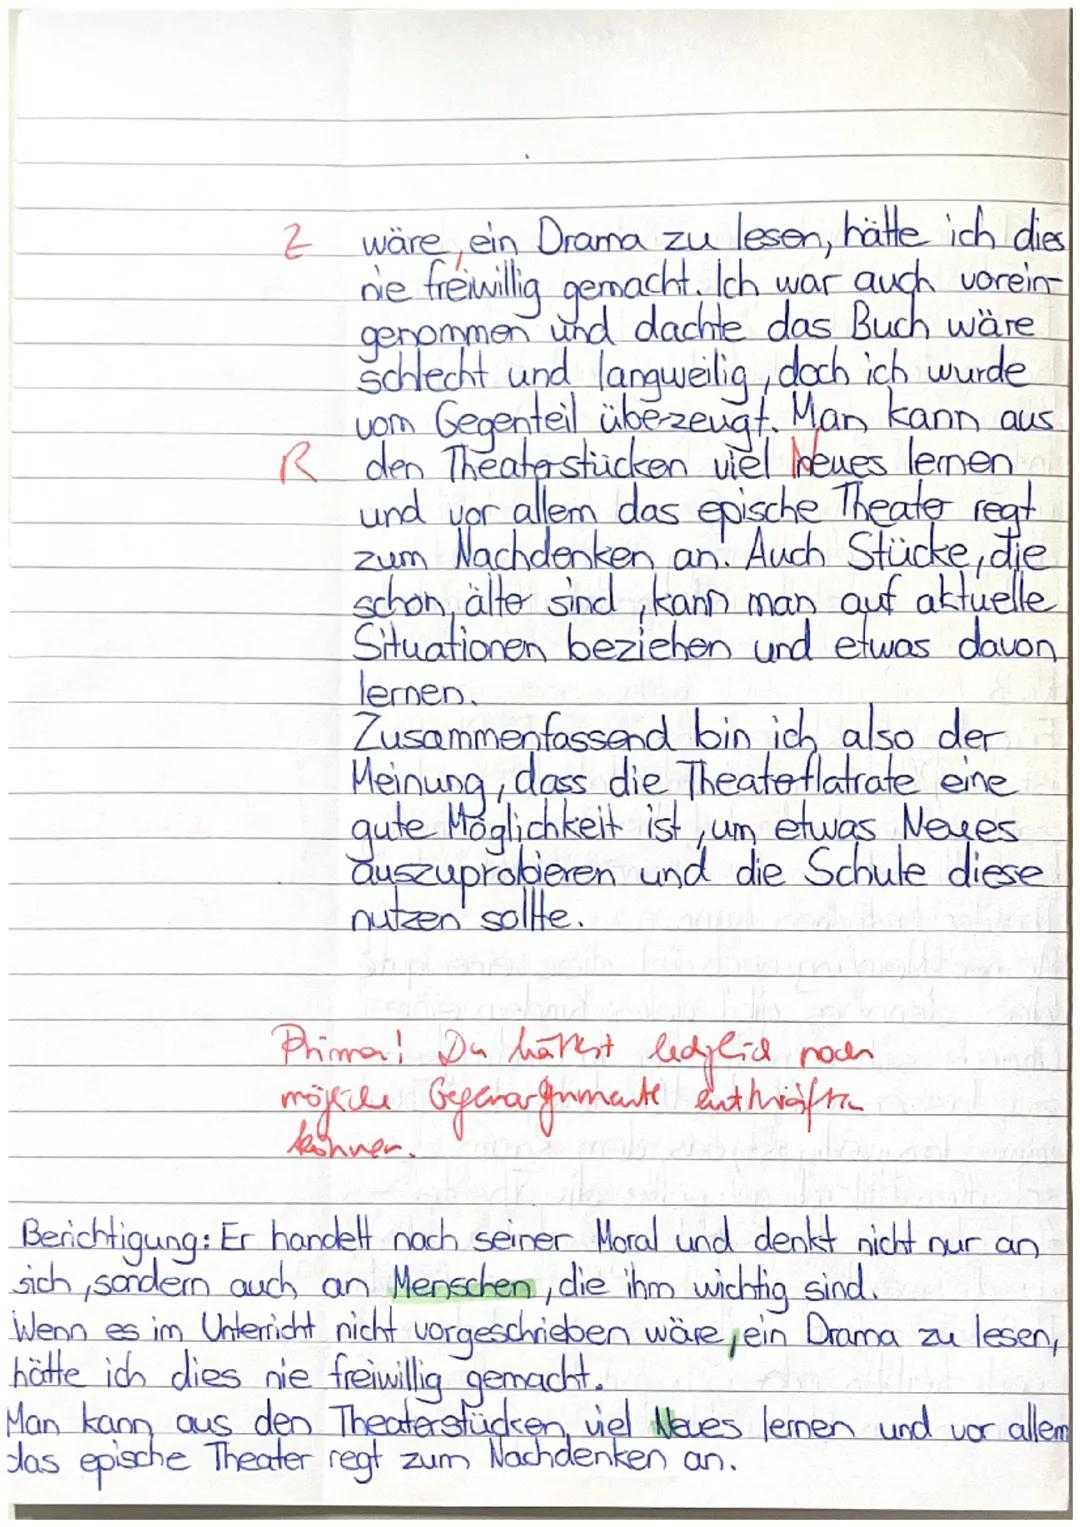 Z wäre, ein Drama zu lesen, hätte ich dies
nie freiwillig gemacht. Ich war auch vorein-
genommen und dachte das Buch wäre
schlecht und langweilig, doch ich wurde
vom Gegenteil überzeugt. Man kann aus
R den Theaterstücken viel Neues lernen
und vor allem das epische Theater regt
zum Nachdenken an. Auch Stücke, die
schon älter sind, kann man auf aktuelle
Situationen beziehen und etwas davon
lernen.
Zusammenfassend bin ich also der
Meinung, dass die Theaterflatrate eine
gute Möglichkeit ist, um etwas Neues
auszuprobieren und die Schule diese
nutzen sollte.
Prima! Du hättest lediglich noch
mögliche Gegenargumente entkräften
können.
Berichtigung: Er handelt nach seiner Moral und denkt nicht nur an
sich, sondern auch an Menschen, die ihm wichtig sind.
Wenn es im Unterricht nicht vorgeschrieben wäre, ein Drama zu lesen,
hätte ich dies nie freiwillig gemacht.
Man kann aus den Theaterstücken viel Neues lernen und vor allem
das epische Theater regt zum Nachdenken an.